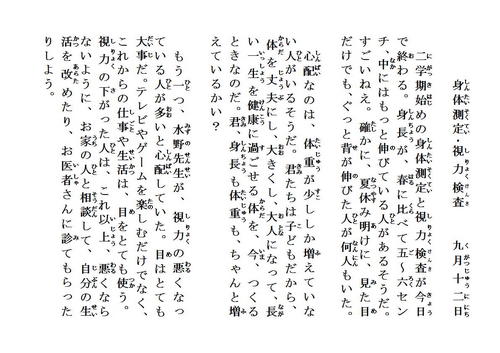 身体測定・視力検査　九月十二日
二学期始めの身体測定と視力検査が今日
で終わる。身長が、春に比べて五～六セン
チ、中にはもっと伸びている人があるそうだ。
すごいねえ。確かに、夏休み明けに、見た目
だけでも、ぐっと背が伸びた人が何人もいた。
心配なのは、体重が少ししか増えていな
い人がいるそうだ。君たちは子どもだから、
体を丈夫にし、大きくし、大人になって、長
い一生を健康に過ごせる体を、今、つくる
ときなのだ。君、身長も体重も、ちゃんと増
えているかい？
もう一つ、水野先生が、視力の悪くなっ
ている人が多いと心配していた。目はとても
大事だ。テレビやゲームを楽しむだけでなく、
これからの仕事や生活は、目をとても使う。
視力の下がった人は、これ以上、悪くなら
ないように、お家の人と相談して、自分の生
活を改めたり、お医者さんに診てもらった
りしよう。